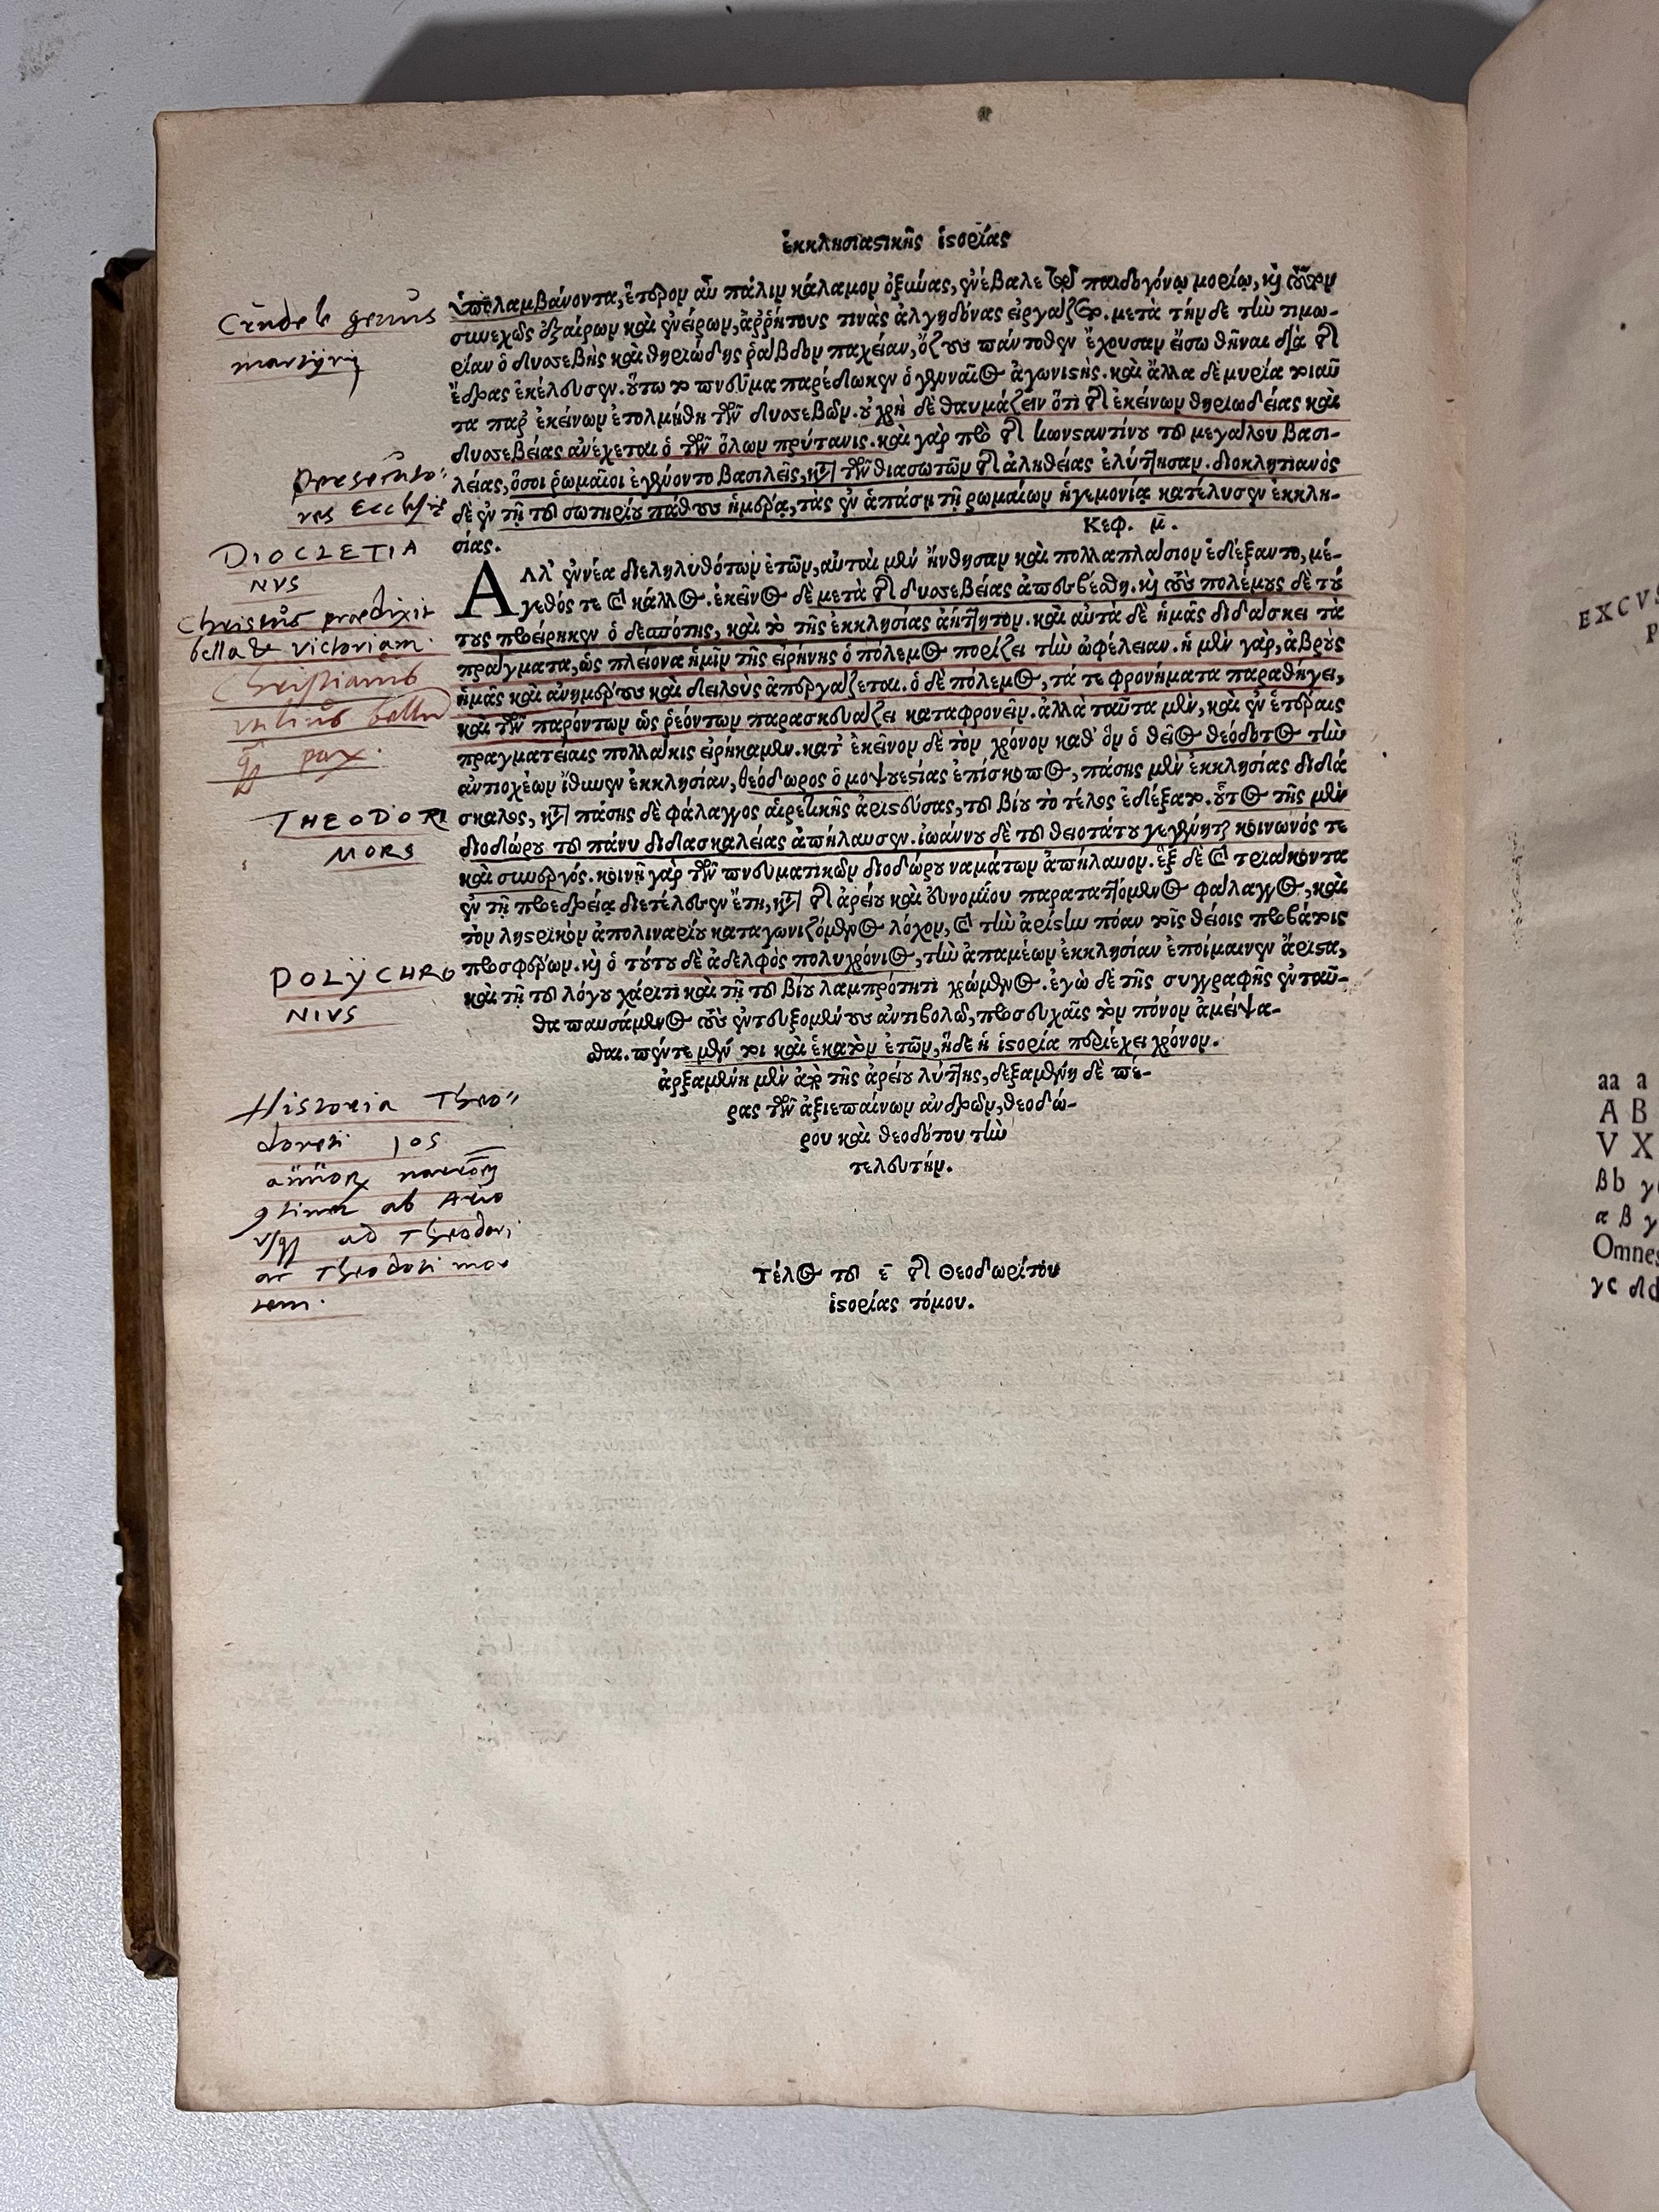 ἐκκλησιαστικῆς ἱστορίας
Crudele genus
martyrij
ὑπολαμβάνοντα, ἕτερον αὖ πάλιν κάλαμον ὀξύνας, ἐνέβαλε τῷ παιδογόνῳ μορίῳ, καὶ τοῦτον
συνεχῶς ἐξαίρων καὶ ἐνείρων, ἀῤῥήτους τινὰς ἀλγηδόνας εἰργάζετο. μετὰ τήνδε τὴν τιμω-
ρίαν ὁ δυσσεβὴς καὶ θηριώδης ῥάβδον παχεῖαν, ὄζους πάντοθεν ἔχουσαν εἰσωθῆναι διὰ τῆς
ἕδρας ἐκέλευσεν. οὕτω τὸ πνεῦμα παρέδωκεν ὁ γενναῖος ἀγωνιστής. καὶ ἄλλα δὲ μυρία τοιαῦ
τα παρ' ἐκείνων ἐτολμήθη τῶν δυσσεβῶν. οὐ χρὴ δὲ θαυμάζειν ὅτι τῆς ἐκείνων θηριωδείας καὶ
δυσσεβείας ἀνέχεται ὁ τῶν ὅλων πρύτανις. καὶ γὰρ πρὸ τῆς κωνσταντίνου τοῦ μεγάλου βασι-
λείας, ὅσοι ῥωμαῖοι ἐγένοντο βασιλεῖς, κατὰ τῶν θιασωτῶν τῆς ἀληθείας ἐλύττησαν. διοκλητιανὸς
δὲ ἐν τῇ τοῦ σωτηρίου πάθους ἡμέρᾳ, τὰς ἐν ἁπάσῃ τῇ ρωμαίων ἡγεμονίᾳ κατέλυσεν ἐκκλη-
σίας.
Κεφ. μ̄.
Ecclesiæ
DIOCLETIA
NVS
Christus praedixit
bella & victoriam.
Christianis
utilius bellum
pax.
ΑΛλ' ἐννέα διεληλυθότων ἐτῶν, αὐταὶ μὲν ἤνθησαν καὶ πολλαπλάσιον ἐδέξαντο, μέ-
γεθός τε καὶ κάλλος. ἐκεῖνος δὲ μετὰ τῆς δυσσεβείας ἀπεσβέσθη. καὶ τοὺς πολέμους δὲ τού
τους προείρηκεν ὁ δεσπότης, καὶ τὸ τῆς ἐκκλησίας ἀήττητον. καὶ αὐτὰ δὲ ἡμᾶς διδάσκει τὰ
πράγματα, ὡς πλείονα ἡμῖν τῆς εἰρήνης ὁ πόλεμος πορίζει τὴν ὠφέλειαν. ἡ μὲν γὰρ, ἁβροὺς
ἡμᾶς καὶ ἀνημέρους καὶ δειλοὺς ἀπεργάζεται. ὁ δὲ πόλεμος, τά τε φρονήματα παραθήγει,
καὶ τῶν παρόντων ὡς ῥεόντων παρασκευάζει καταφρονεῖν. ἀλλὰ ταῦτα μὲν, καὶ ἐν ἑτέραις
πραγματείαις πολλάκις εἰρήκαμεν. κατ' ἐκεῖνον δὲ τὸν χρόνον καθ' ὃν ὁ θεῖος θεόδοτος τὴν
ἀντιοχέων ἴθυνεν ἐκκλησίαν, θεόδωρος ὁ μοψουεστίας ἐπίσκοπος, πάσης μὲν ἐκκλησίας διδά
σκαλος, κατὰ πάσης δὲ φάλαγγος αἱρετικῆς ἀριστεύσας, τοῦ βίου τὸ τέλος ἐδέξατο. οὗτος τῆς μὲν
διοδώρου τοῦ πάνυ διδασκαλείας ἀπήλαυσεν. ἰωάννου δὲ τοῦ θειοτάτου γεγένηται κοινωνός τε
καὶ συνεργός. κοινῇ γὰρ τῶν πνευματικῶν διοδώρου ναμάτων ἀπήλαυον. ἓξ δὲ καὶ τριάκοντα
ἐν τῇ προεδρείᾳ διετέλεσεν ἔτη, κατὰ τῆς ἀρείου καὶ εὐνομίου παραταττόμενος φάλαγγος, καὶ
τὸν λῃστρικὸν ἀπολιναρίου καταγωνιζόμενος λόχον, καὶ τὴν ἀρίστην πόαν τοῖς θείοις προβάτοις
προσφέρων. καὶ ὁ τούτου δὲ ἀδελφὸς πολυχρόνιος, τὴν ἀπαμέων ἐκκλησίαν ἐποίμαινεν ἄριστα,
καὶ τῇ τοῦ λόγου χάριτι καὶ τῇ τοῦ βίου λαμπρότητι χρώμενος. ἐγὼ δὲ τῆς συγγραφῆς ἐνταῦ-
θα παυσάμενος τοὺς ἐντευξομένους ἀντιβολῶ, προσευχαῖς τὸν πόνον ἀμείψα-
σθαι. πέντε μέν τοι καὶ ἑκατὸν ἐτῶν, ἥδε ἡ ἱστορία περιέχει χρόνον.
ἀρξαμένη μὲν ἀπὸ τῆς ἀρείου λύττης, δεξαμένη δὲ πέ-
ρας τῶν ἀξιεπαίνων ἀνδρῶν, θεοδώ-
ρου καὶ θεοδότου τὴν
τελευτήν.
THEODORI
MORS
POLYCHRO
NIVS
Historia Theo"
doreti 105
annorum
ab Ario
ad Theodori
ac Theodoti mor
tem.
Τέλος τοῦ ε̄ τῆς Θεοδωρίτου
ἱστορίας τόμου.
EXCVS
P
aa a
A B
V X
βb γ
α β γ
Omnes
γc δd